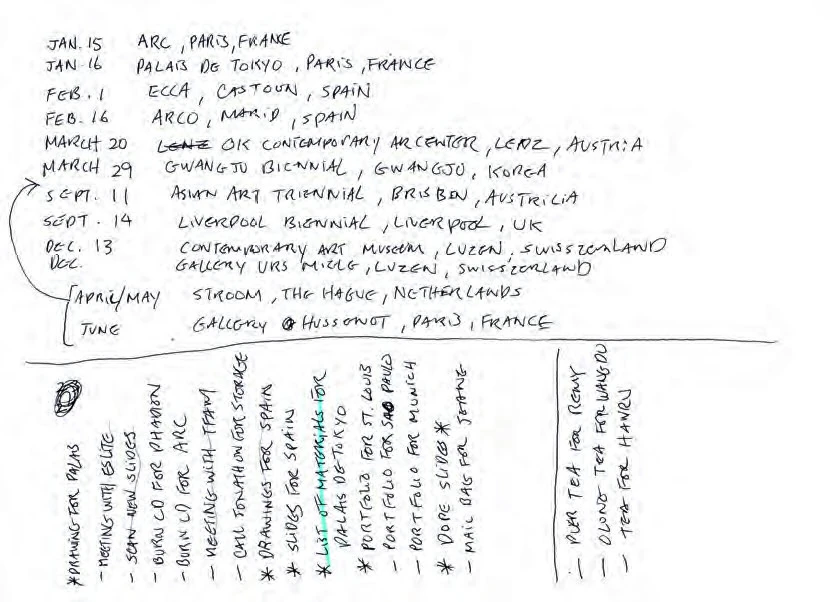 JAN. 15 ARC, PARIS, FRANCE
JAN 16 PALAIS DE TOKYO, PARIS, FRANCE
FEB. 1 ECCA, CASTOUN, SPAIN
FEB. 16 ARCO, MARID, SPAIN
MARCH 20 LENZ OK CONTEMPORARY ARCENTER, LENZ, AUSTRIA
MARCH 29 GWANGJU BIENNIAL, GWANGJU, KOREA
SEPT. 11 ASIAN ART TRIENNIAL, BRISBEN, AUSTRILIA
SEPT. 14 LIVERPOOL BIENNIAL, LIVERPOOL, UK
DEC. 13 CONTEMPORARY ART MUSEUM, LUZEN, SWISSZERLAND
DEC. GALLERY URS MIELE, LUZEN, SWISSZERLAND
APRIL/MAY STROOM, THE HAGUE, NETHERLANDS
JUNE GALLERY HUSSENOT, PARIS, FRANCE
* DRAWING FOR PALAIS
- MEETING WITH ESLITE
- SCAN NEW SLIDES
- BURN CD FOR PHAIDON
- BURN CD FOR ARC
- MEETING WITH TFAM
- CALL JONATHON FOR STORAGE
* DRAWINGS FOR SPAIN
* SLIDES FOR SPAIN
* LIST OF MATERIALS FOR
PALAIS DE TOKYO
* PORTFOLIO FOR ST. LOUIS
- PORTFOLIO FOR SAO PAULO
- PORTFOLIO FOR MUNICH
* DOPE SLIDES *
- MAIL BAG FOR JOANE
- PUER TEA FOR REMY
- OLONG TEA FOR WANGDU
- TEA FOR HANRU